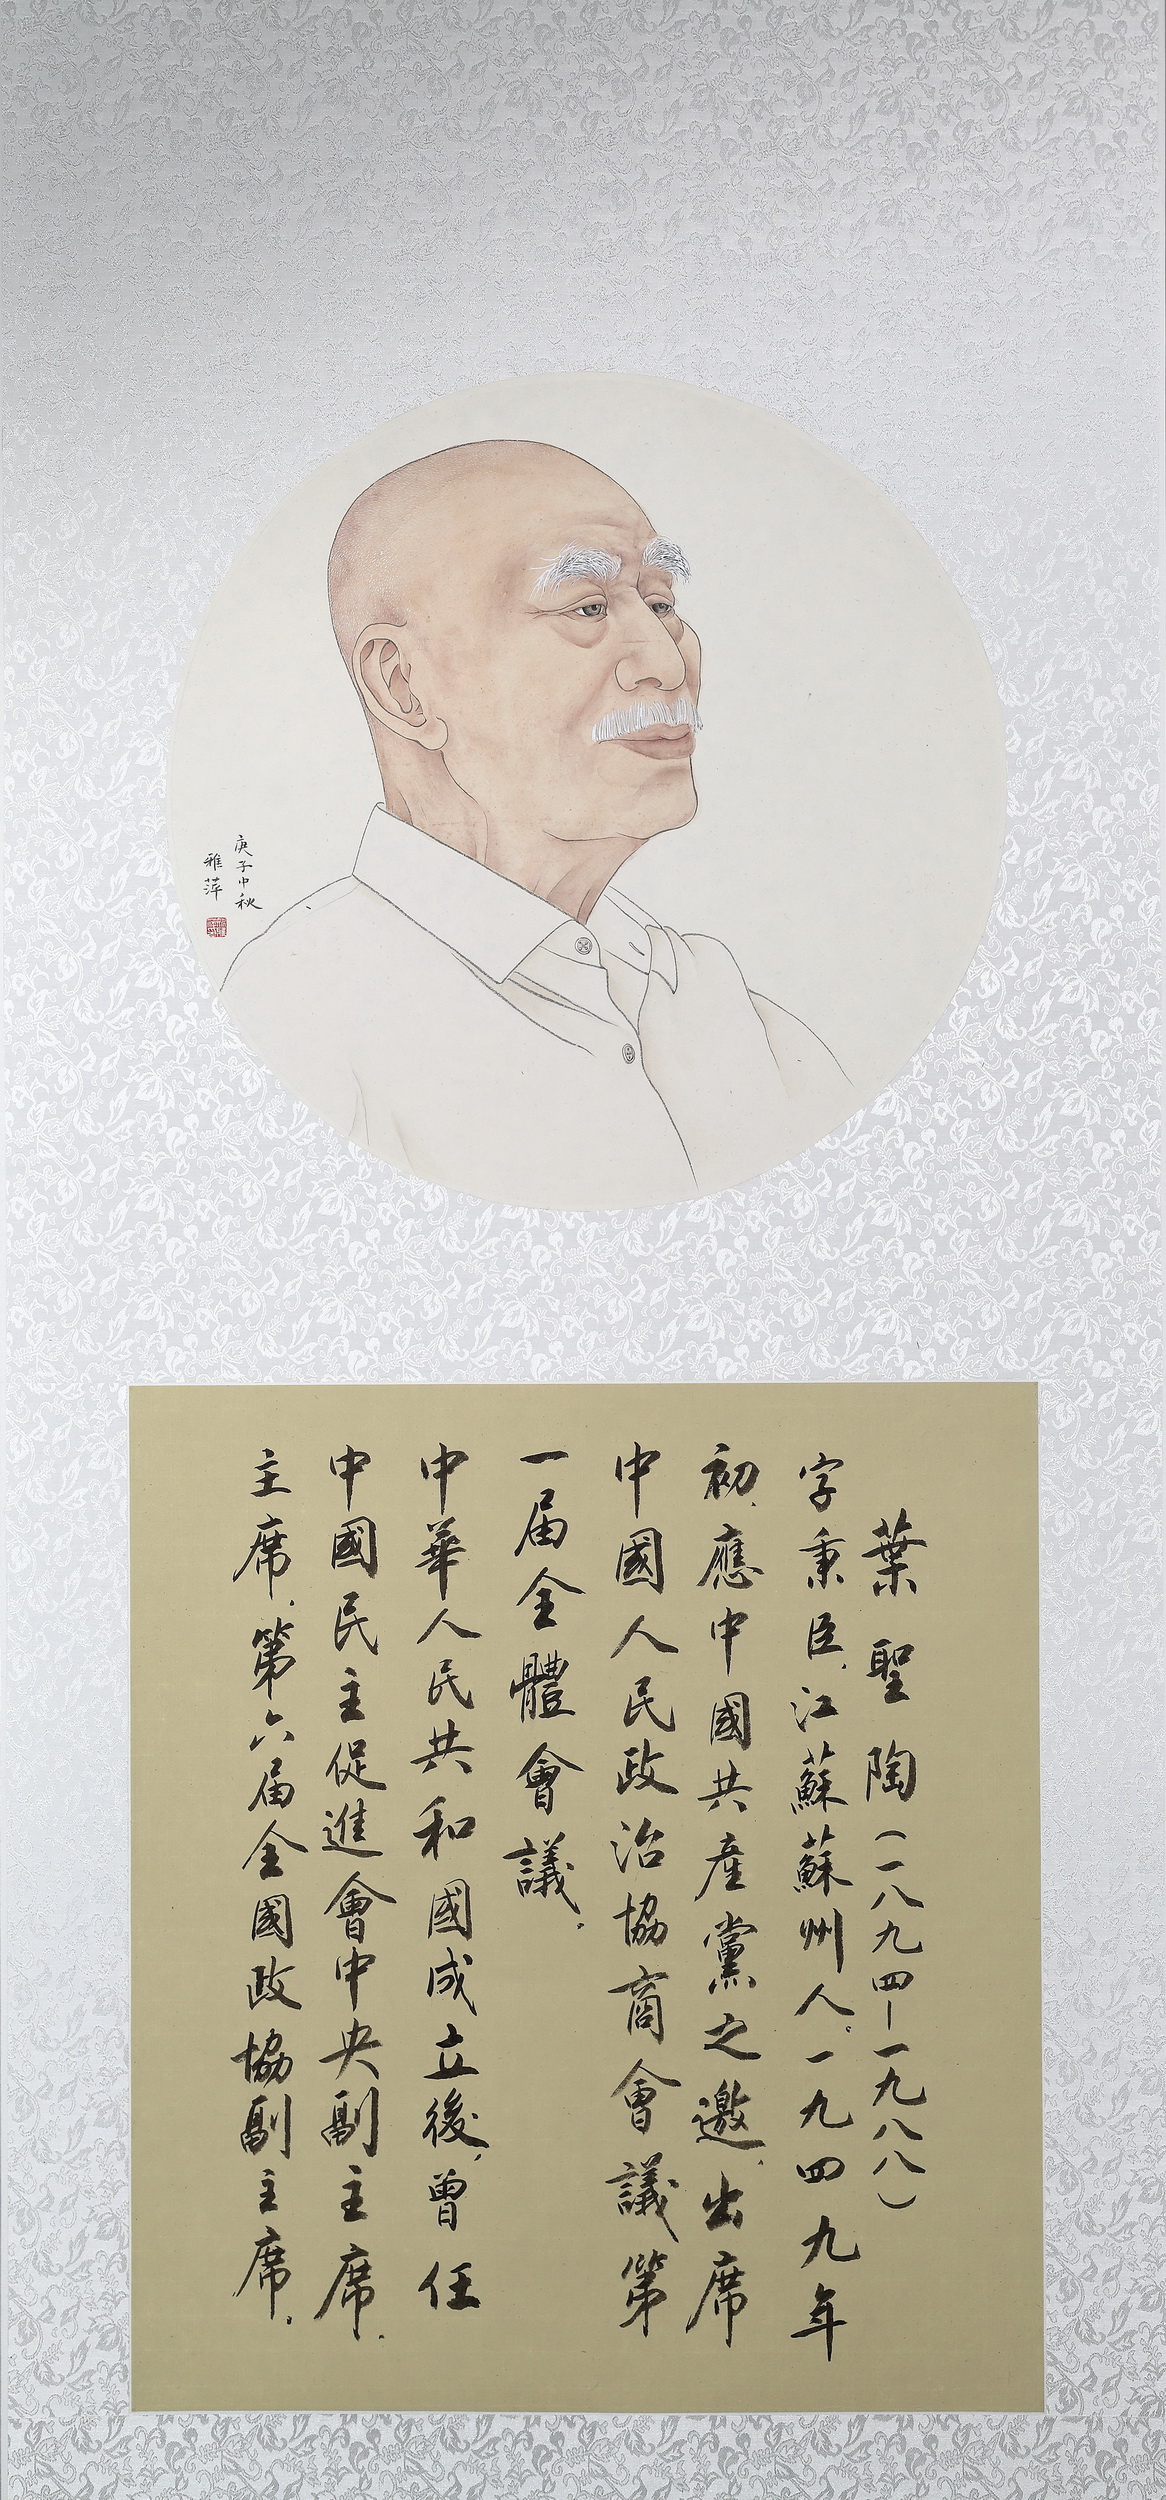 庚子中秋
雅萍
葉聖陶（一八九四—一九八八）
字秉臣，江蘇蘇州人。一九四九年
初，應中國共產黨之邀，出席
中國人民政治協商會議第
一届全體會議。
中華人民共和國成立後，曾任
中國民主促進會中央副主席、
主席，第六届全國政協副主席。